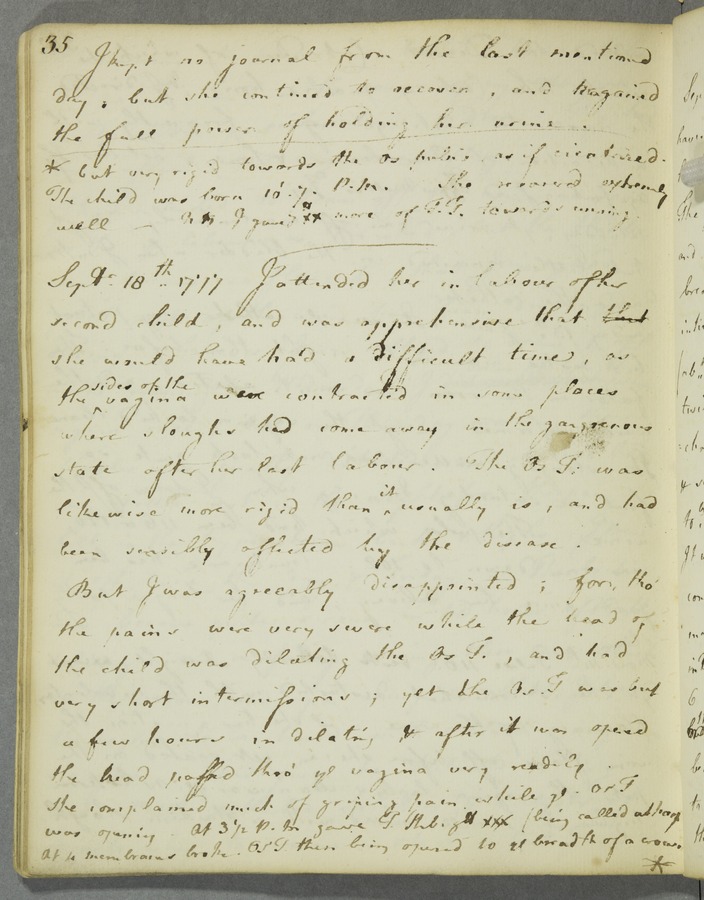 35
I kept no journal from the last mentioned
day, but she continued to recover, and regained
the full power of holding her urine.
* but very rigid towards the os pubis, as if cicatrised.
The child was born 10. P.M. She recovered extremely
well — N.B. I gave xx more of T.T. towards
Septr. 18th. 1777 I attended her in labour of her
second child, and was apprehensive that that
she would have had a difficult time, as
the sides of the vagina were contracted in some places
where sloughs had come away in the gangrenous
state after her last labour. The Os T. was
likewise more rigid than it usually is, and had
been sensibly affected by the disease.
But I was agreeably disappointed; for, tho'
the pains were very severe while the head of
the child was dilating the Os T., and had
very short intermissions; yet the Os. T was but
a few hours in dilatg, & after it was opened
the head passed thro' ye vagina very readily.
She complained much of griping pain while ye. Os T
was opening. At 3½ P.M. gave T. Theb. gtt xxx (being called
At 4 membranes broke. Os T then being opened to ye breadth of a crown.
*